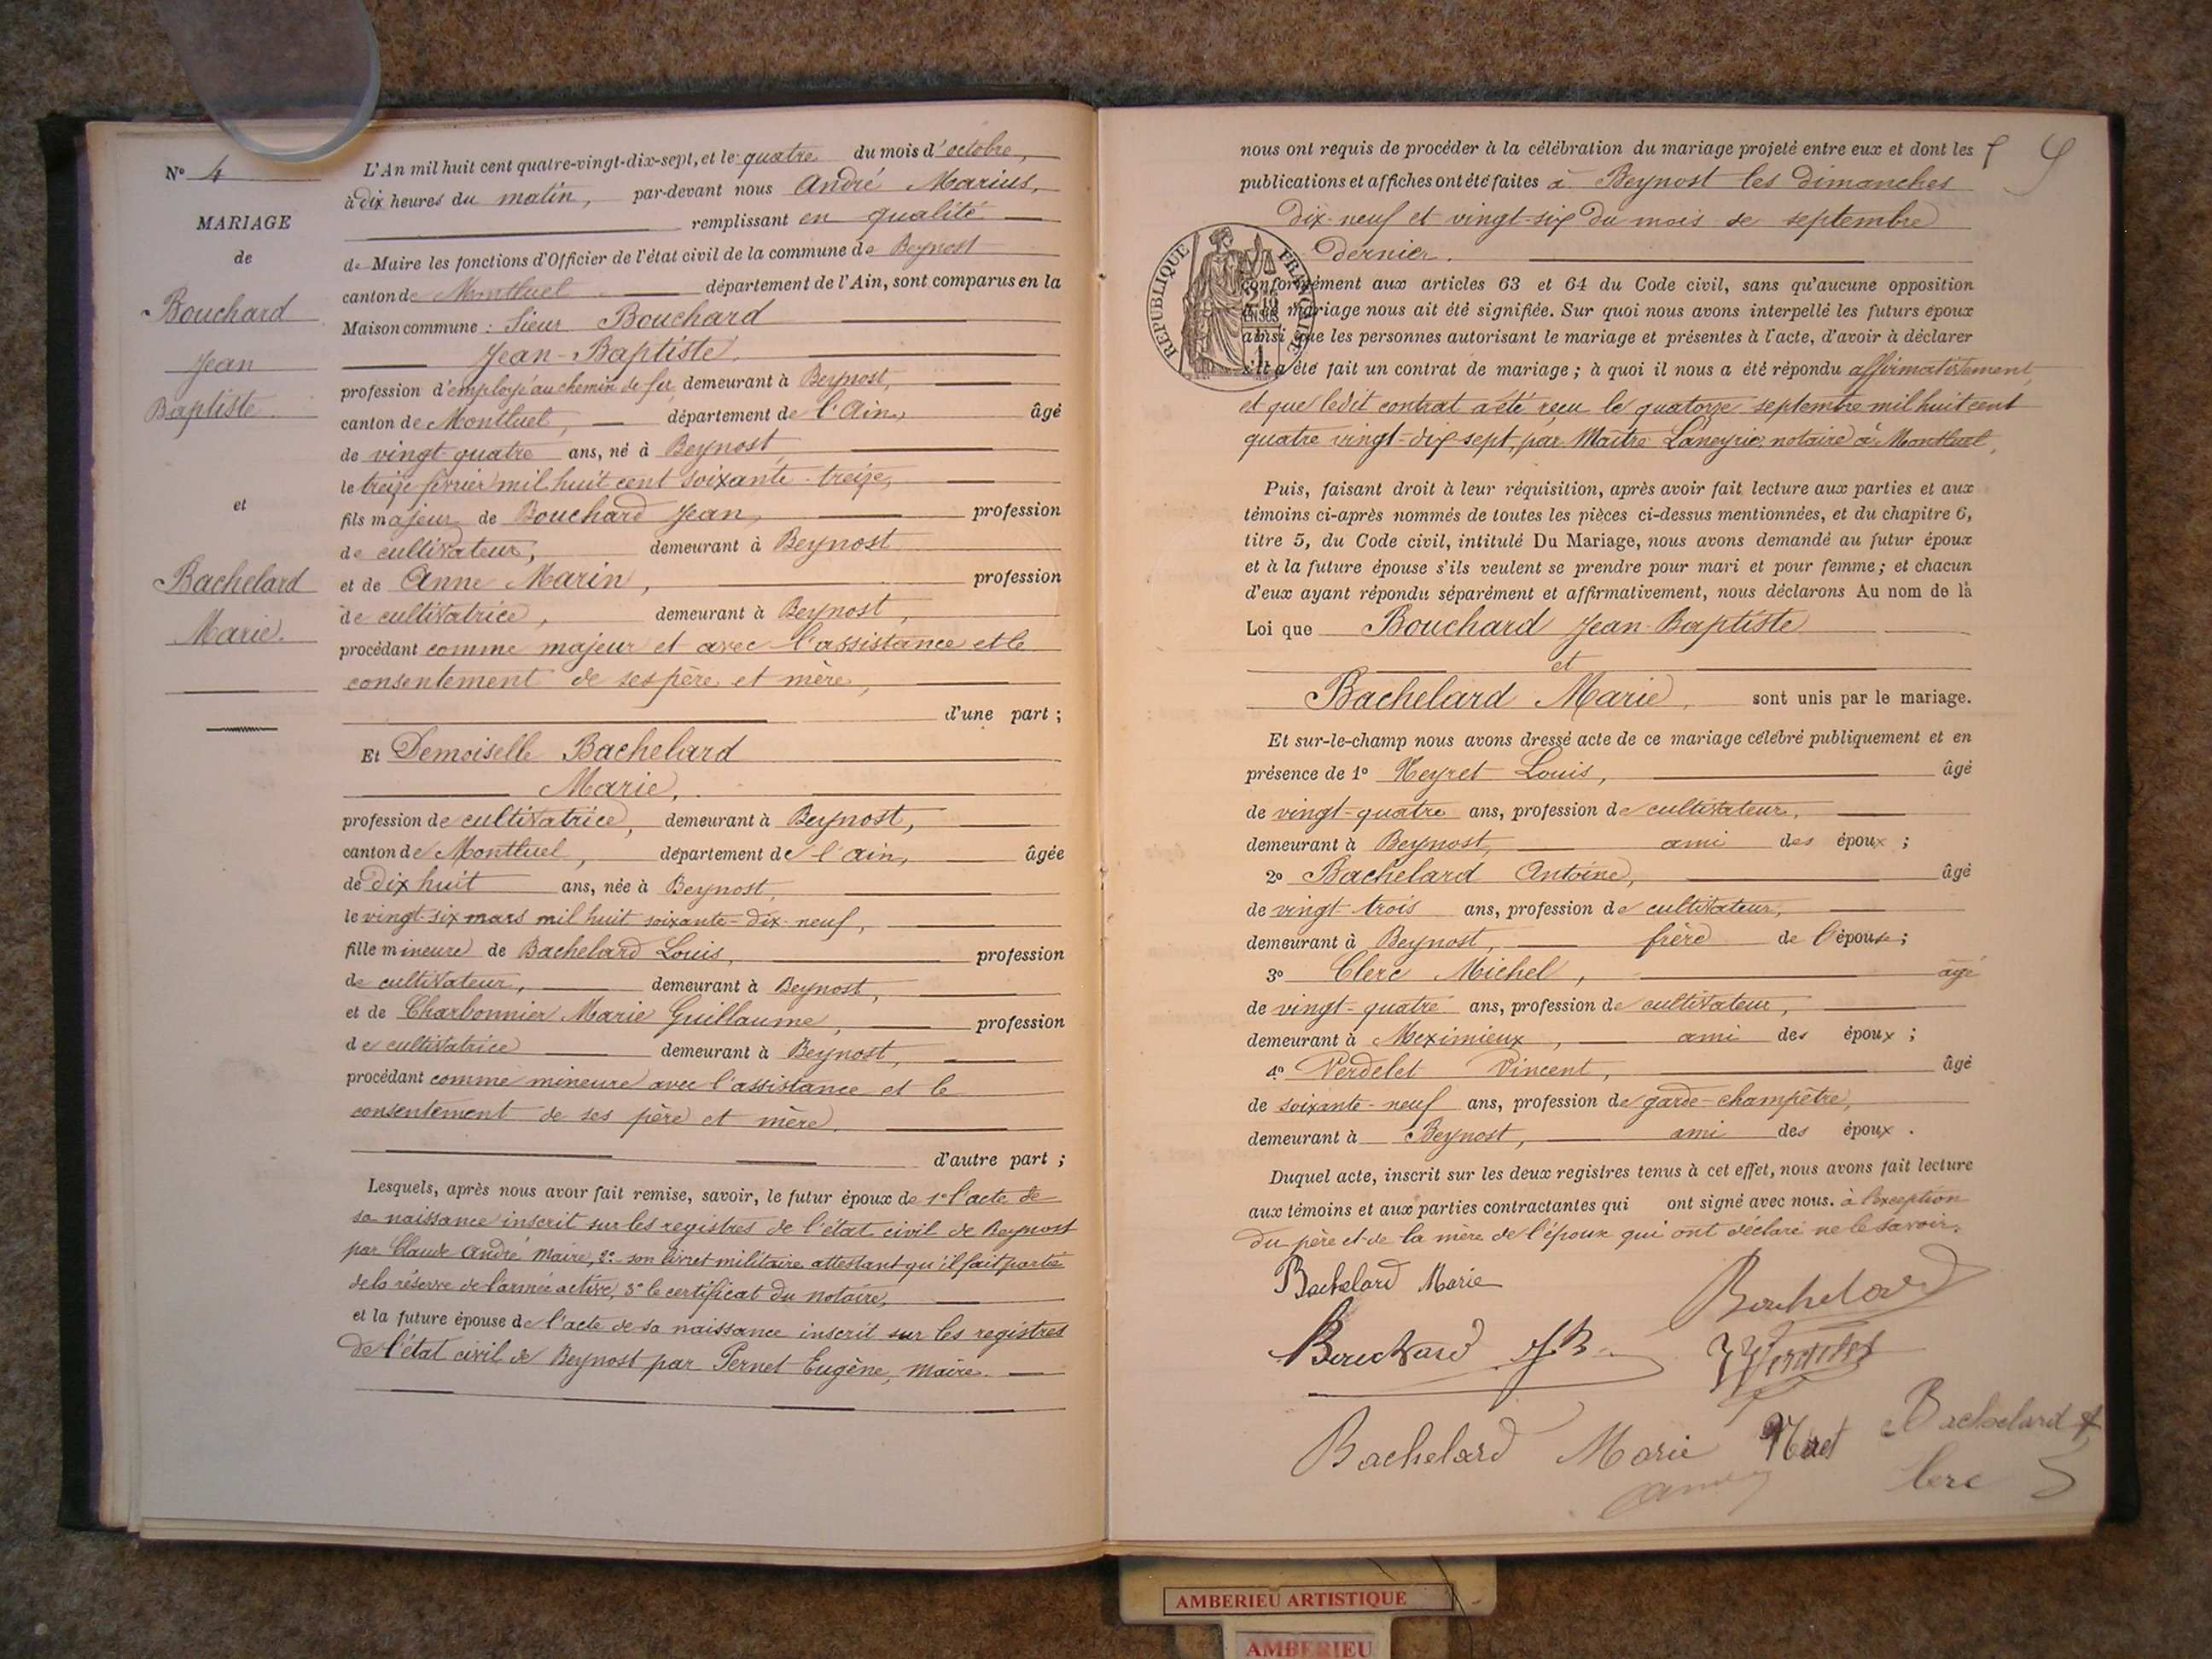 N° 4
MARIAGE
de
Bouchard
Jean
Baptiste.
et
Bachelard
Marie.
L'An mil huit cent quatre-vingt-dix-sept, et le quatre du mois d'octobre,
à dix heures du matin, par-devant nous André Marius,
remplissant en qualité
de Maire les fonctions d'Officier de l'état civil de la commune de Beynost
canton de Montluel département de l'Ain, sont comparus en la
Maison commune : Sieur Bouchard
Jean-Baptiste.
profession d'employé au chemin de fer, demeurant à Beynost,
canton de Montluel, département de l'Ain, âgé
de vingt-quatre ans, né à Beynost,
le treize février mil huit cent soixante-treize,
fils majeur de Bouchard Jean, profession
de cultivateur, demeurant à Beynost
et de Anne Marin, profession
de cultivatrice, demeurant à Beynost,
procédant comme majeur et avec l'assistance et le
consentement de ses père et mère,
d'une part ;
Et Demoiselle Bachelard
Marie,
profession de cultivatrice, demeurant à Beynost,
canton de Montluel, département de l'ain, âgée
de dix huit ans, née à Beynost,
le vingt-six mars mil huit soixante-dix-neuf,
fille mineure de Bachelard Louis, profession
de cultivateur, demeurant à Beynost,
et de Charbonnier Marie Guillaume, profession
de cultivatrice demeurant à Beynost,
procédant comme mineure avec l'assistance et le
consentement de ses père et mère.
d'autre part ;
Lesquels, après nous avoir fait remise, savoir, le futur époux de 1° l'acte de
sa naissance inscrit sur les registres de l'état civil de Beynost
par Claude André maire, 2° son livret militaire attestant qu'il fait partie
de la réserve de l'armée active, 3° le certificat du notaire,
et la future épouse de l'acte de sa naissance inscrit sur les registres
de l'état civil de Beynost par Pernet Eugène, maire.
nous ont requis de procéder à la célébration du mariage projeté entre eux et dont les
publications et affiches ont été faites à Beynost les dimanches
dix-neuf et vingt-six du mois de septembre
dernier.
RÉPUBLIQUE FRANÇAISE
conformément aux articles 63 et 64 du Code civil, sans qu'aucune opposition
à ce mariage nous ait été signifiée. Sur quoi nous avons interpellé les futurs époux
ainsi que les personnes autorisant le mariage et présentes à l'acte, d'avoir à déclarer
s'il a été fait un contrat de mariage ; à quoi il nous a été répondu affirmativement,
et que ledit contrat a été reçu le quatorze septembre mil huit cent
quatre vingt-dix sept, par Maître Laneyrie, notaire à Montluel,
Puis, faisant droit à leur réquisition, après avoir fait lecture aux parties et aux
témoins ci-après nommés de toutes les pièces ci-dessus mentionnées, et du chapitre 6,
titre 5, du Code civil, intitulé Du Mariage, nous avons demandé au futur époux
et à la future épouse s'ils veulent se prendre pour mari et pour femme ; et chacun
d'eux ayant répondu séparément et affirmativement, nous déclarons Au nom de la
Loi que Bouchard Jean-Baptiste
et
Bachelard Marie, sont unis par le mariage.
Et sur-le-champ nous avons dressé acte de ce mariage célébré publiquement et en
présence de 1° Neyret Louis, âgé
de vingt-quatre ans, profession de cultivateur,
demeurant à Beynost, ami des époux ;
2° Bachelard Antoine, âgé
de vingt-trois ans, profession de cultivateur,
demeurant à Beynost, frère de l'épouse ;
3° Clerc Michel, âgé
de vingt-quatre ans, profession de cultivateur,
demeurant à Meximieux, ami des époux ;
4° Verdelet Vincent, âgé
de soixante-neuf ans, profession de garde-champêtre,
demeurant à Beynost, ami des époux.
Duquel acte, inscrit sur les deux registres tenus à cet effet, nous avons fait lecture
aux témoins et aux parties contractantes qui ont signé avec nous. à l'exception
du père et de la mère de l'époux qui ont déclaré ne le savoir.
Bachelard Marie
Bachelard
Bouchard JB
Bachelard Marie
Bachelard
Clerc
AMBERIEU ARTISTIQUE
AMBERIEU